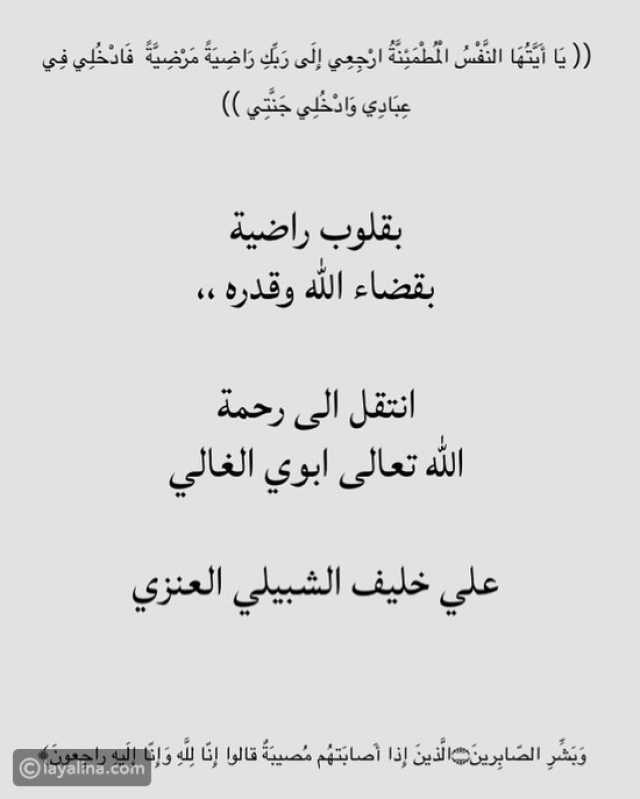 (( يَا أَيَّتُهَا النَّفْسُ الْمُطْمَئِنَّةُ ارْجِعِي إِلَى رَبِّكِ رَاضِيَةً مَرْضِيَّةً فَادْخُلِي فِي
عِبَادِي وَادْخُلِي جَنَّتِي ))
بقلوب راضية
بقضاء الله وقدره ،،
انتقل الى رحمة
الله تعالى ابوي الغالي
علي خليف الشبيلي العنزي
وَبَشِّرِ الصّابِرينَ۝الَّذينَ إِذا أَصابَتهُم مُصيبَةٌ قالوا إِنّا لِلَّهِ وَإِنّا إِلَيهِ راجِعونَ﴾
©layalina.com